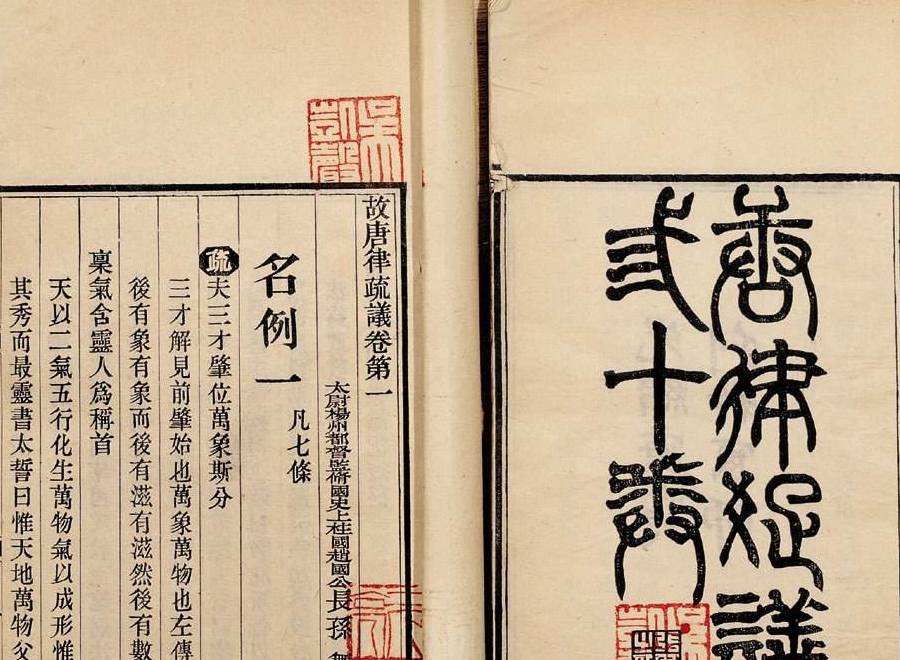 唐律疏議
弎十卷
吳凱聲
故唐律疏議卷第一
太尉楊州都督監修國史上柱國趙國公長孫
名例一
凡七條
疏夫三才肇位萬象斯分
三才解見前肇始也萬象萬物也左傳
後有象有象而後有滋有滋然後有數
稟氣含靈人爲稱首
天以二氣五行化生萬物氣以成形惟
其秀而最靈書太誓曰惟天地萬物父